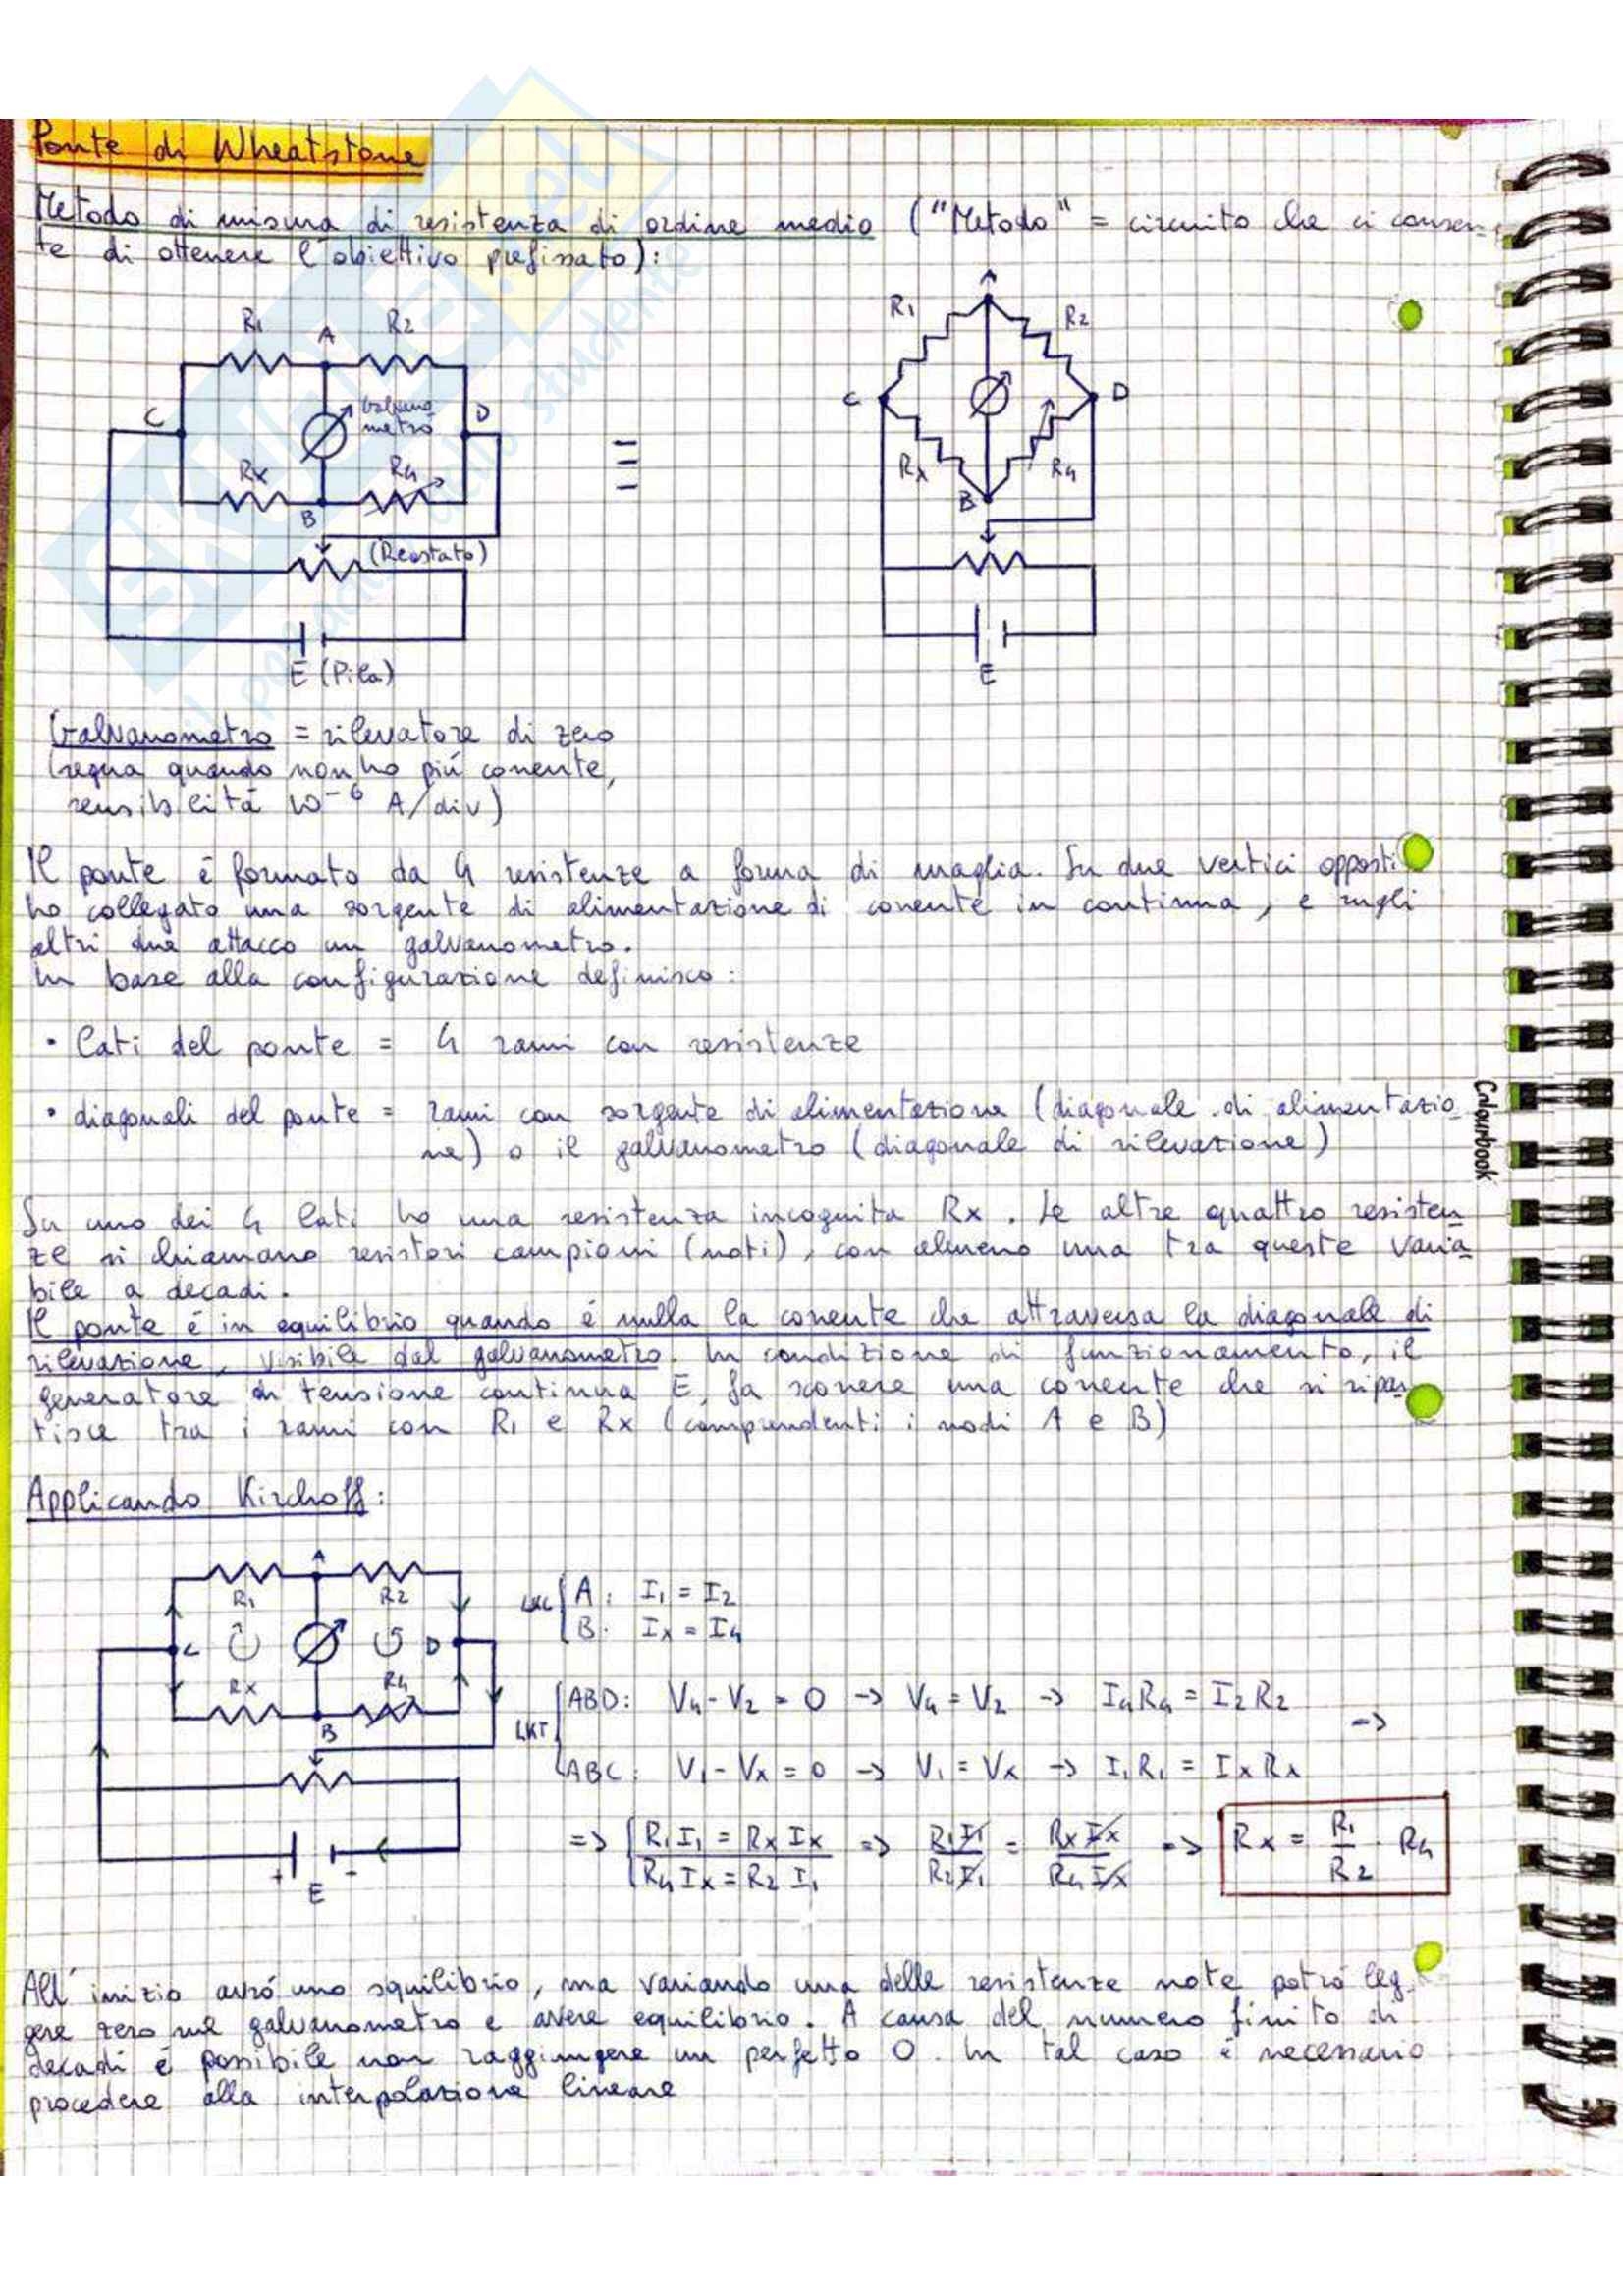 Ponte di Wheatstone
Metodo di misura di resistenza di ordine medio ("Metodo" = circuito che ci consen-
te di ottenere l'obiettivo prefissato):
R1 A R2
C Galvano metro D
Rx R4
B
(Reostato)
E (Pila)
A
R1 R2
C D
Rx R4
B
E
Galvanometro = rilevatore di zero
(segna quando non ho più corrente,
sensibilità 10⁻⁶ A/div)
Il ponte é formato da 4 resistenze a forma di maglia. Su due vertici opposti
ho collegato una sorgente di alimentazione di corrente in continua, e sugli
altri due attacco un galvanometro.
In base alla configurazione definisco:
• Lati del ponte = 4 rami con resistenze
• diagonali del ponte = rami con sorgente di alimentazione (diagonale di alimentazio_
ne) o il galvanometro (diagonale di rilevazione)
Colourbook
Su uno dei 4 lati ho una resistenza incognita Rx. Le altre quattro resisten_
ze si chiamano resistori campioni (noti), con almeno una tra queste varia_
bile a decadi.
Il ponte é in equilibrio quando é nulla la corrente che attraversa la diagonale di
rilevazione, visibile dal galvanometro. In condizione di funzionamento, il
generatore di tensione continua E, fa scorrere una corrente che si ripar_
tisce tra i rami con R1 e Rx (comprendenti i nodi A e B)
Applicando Kirchoff:
A
R1 R2
C D
Rx R4
B
+ -
E
LKC { A: I1 = I2
B: Ix = I4
LKT { ABD: V4 - V2 = 0 -> V4 = V2 -> I4R4 = I2R2
->
ABC: V1 - Vx = 0 -> V1 = Vx -> I1R1 = IxRx
=> { R1I1 = RxIx => R1I1 / R2I1 = RxIx / R4Ix => Rx = R1/R2 · R4
R4Ix = R2I1
All'inizio avró uno squilibrio, ma variando una delle resistenze note potró leg_
gere zero sul galvanometro e avere equilibrio. A causa del numero finito di
decadi é possibile non raggiungere un perfetto 0. In tal caso é necessario
procedere alla interpolazione lineare